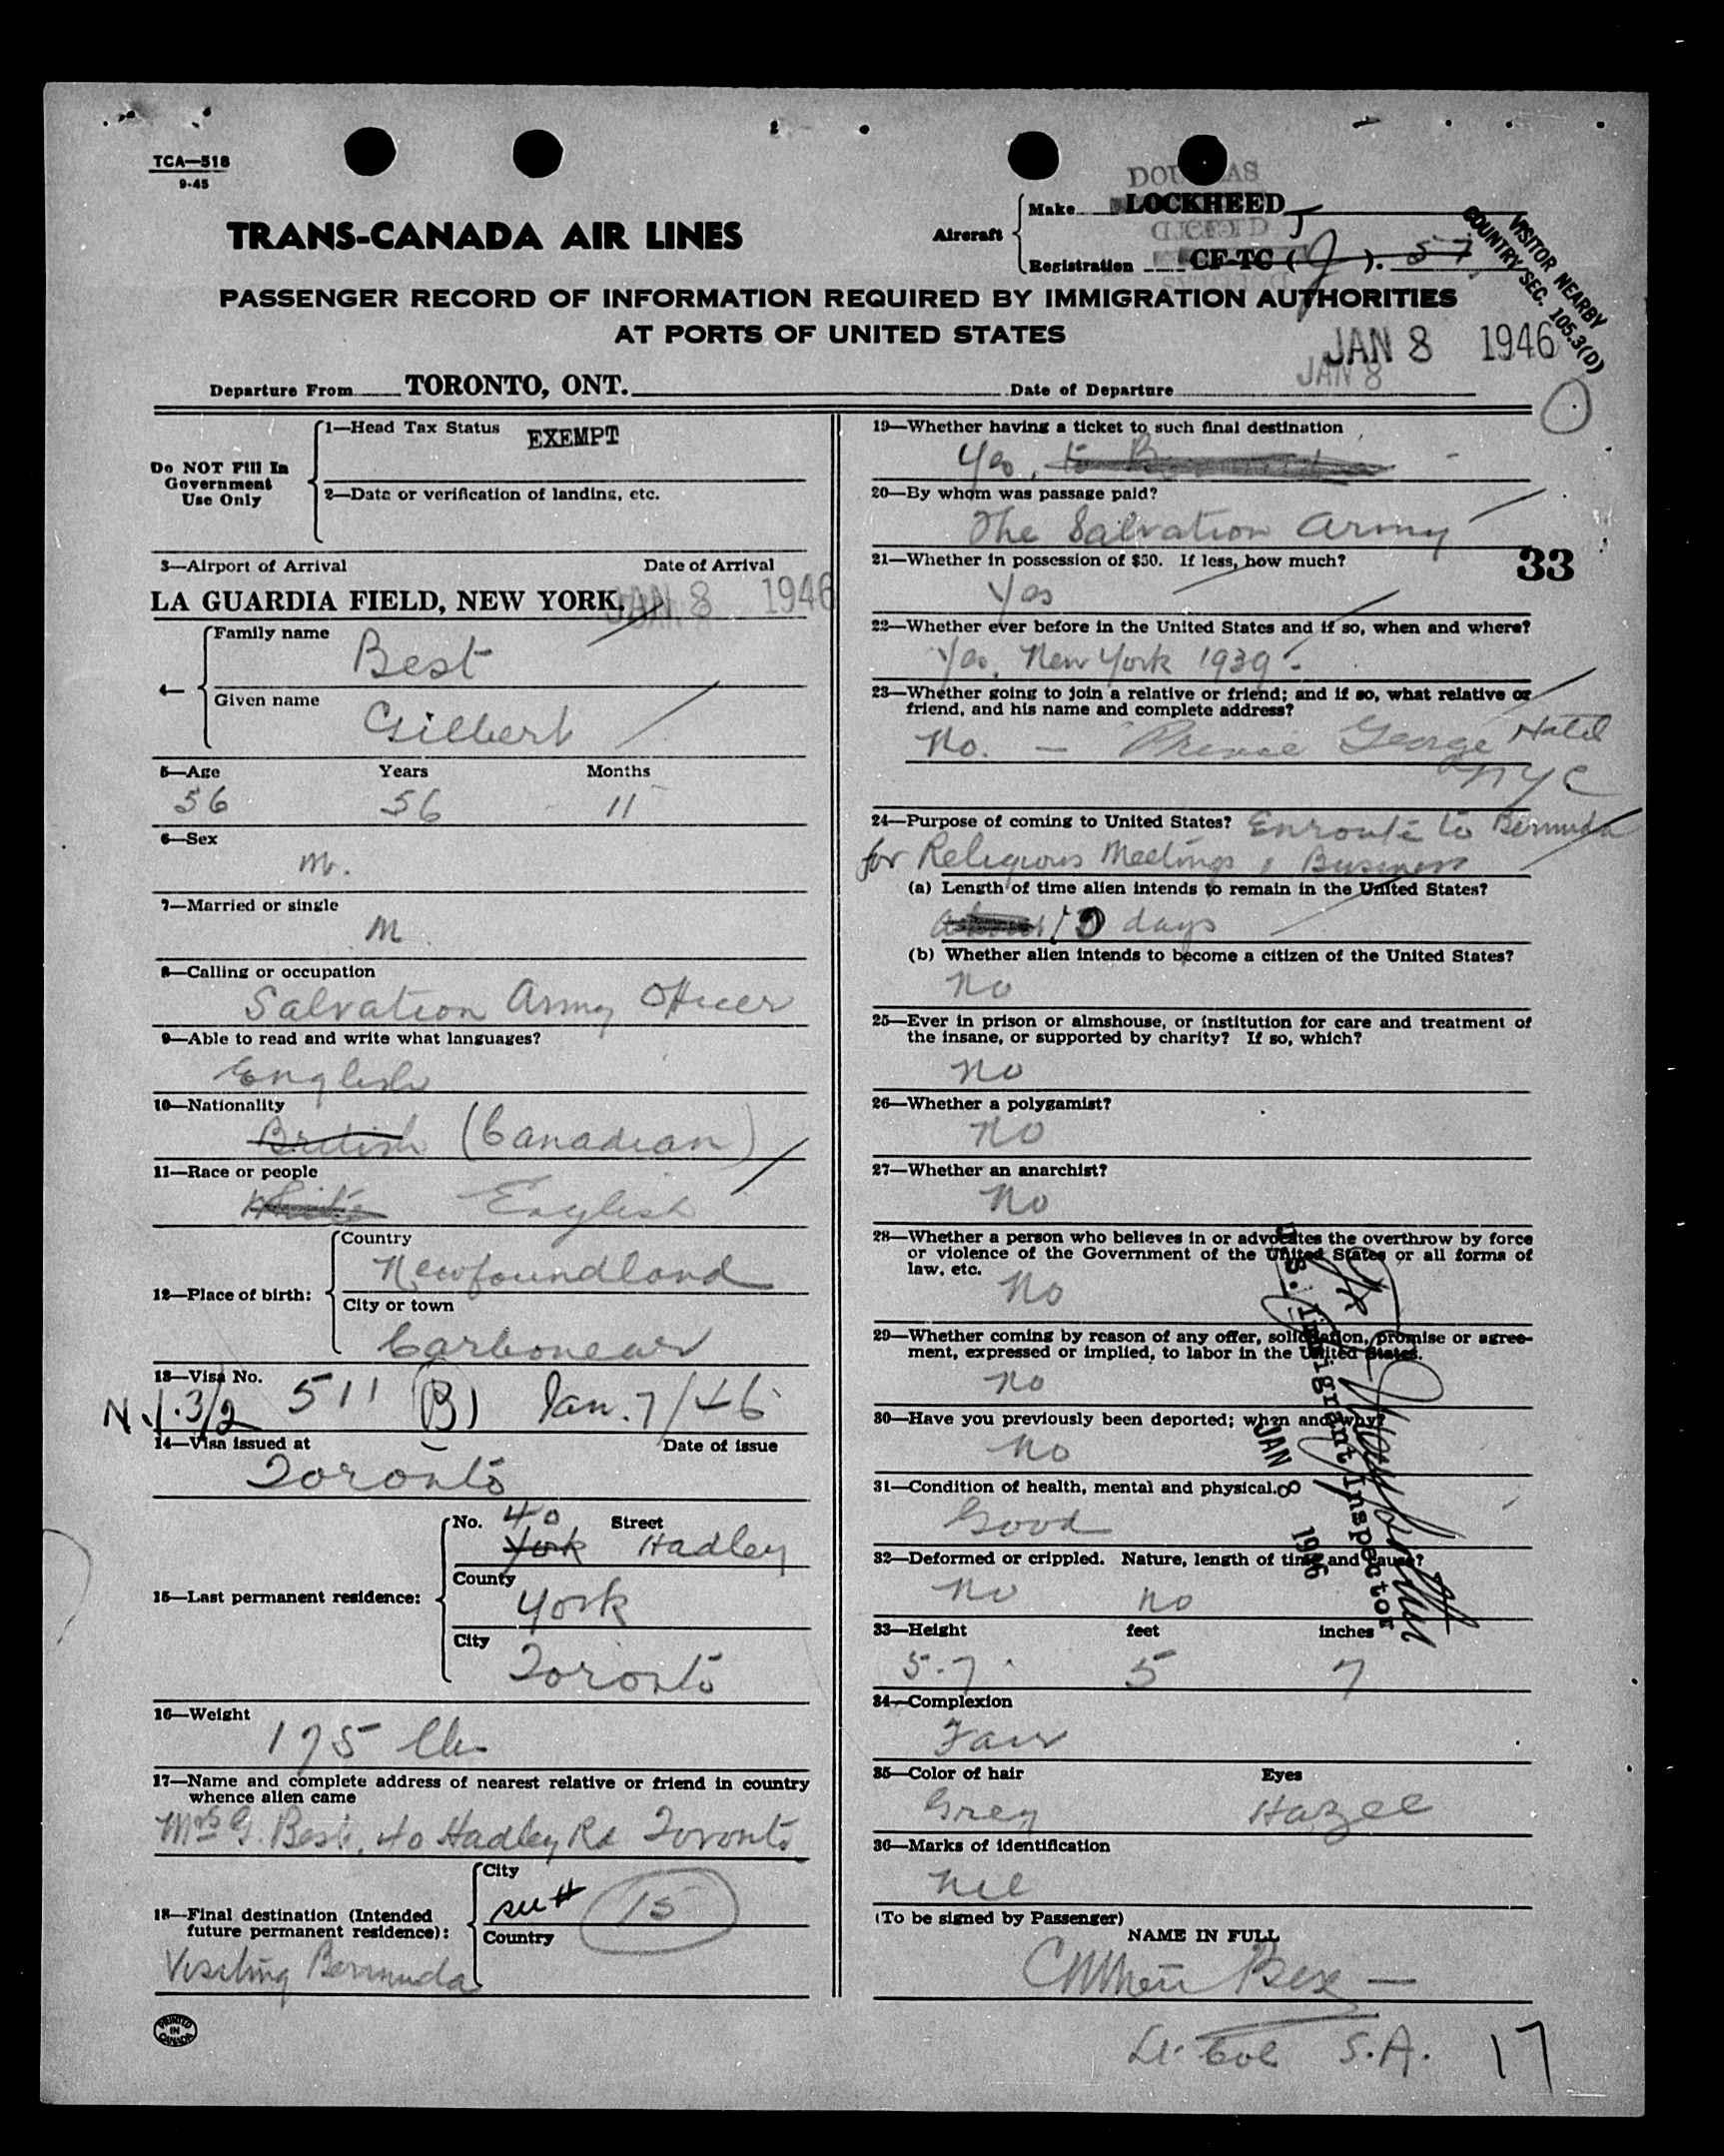 TCA—518
9-45
DOUGLAS
Aircraft
Make LOCKHEED
Registration CF-TC ( J ). 57
TRANS-CANADA AIR LINES
VISITOR NEARBY
COUNTRY SEC. 105.3(D)
PASSENGER RECORD OF INFORMATION REQUIRED BY IMMIGRATION AUTHORITIES
AT PORTS OF UNITED STATES
JAN 8 1946
JAN 8
Departure From TORONTO, ONT. Date of Departure
Do NOT Fill In
Government
Use Only
1—Head Tax Status EXEMPT
2—Date or verification of landing, etc.
3—Airport of Arrival Date of Arrival
LA GUARDIA FIELD, NEW YORK. JAN 8 1946
4—
Family name
Best
Given name
Gilbert
5—Age Years Months
56 56 11
6—Sex
M.
7—Married or single
M
8—Calling or occupation
Salvation Army Officer
9—Able to read and write what languages?
English
10—Nationality
British (Canadian)
11—Race or people
White English
12—Place of birth:
Country
Newfoundland
City or town
Carbonear
13—Visa No.
N.I. 3/2 511 (B) Jan. 7/46
14—Visa issued at Date of issue
Toronto
15—Last permanent residence:
No. 40 Street
York Hadley
County
York
City
Toronto
16—Weight
175 lbs
17—Name and complete address of nearest relative or friend in country
whence alien came
Mrs G. Best, 40 Hadley Rd Toronto
18—Final destination (Intended
future permanent residence):
City
see # 15
Country
Visiting Bermuda
PRINTED
IN
CANADA
19—Whether having a ticket to such final destination
Yes, to
20—By whom was passage paid?
The Salvation Army
21—Whether in possession of $50. If less, how much?
33
Yes
22—Whether ever before in the United States and if so, when and where?
Yes, New York 1939 -
23—Whether going to join a relative or friend; and if so, what relative or
friend, and his name and complete address?
No. — Prince George Hotel
NYC
24—Purpose of coming to United States? Enroute to Bermuda
for Religious Meetings, Business
(a) Length of time alien intends to remain in the United States?
days
(b) Whether alien intends to become a citizen of the United States?
No
25—Ever in prison or almshouse, or institution for care and treatment of
the insane, or supported by charity? If so, which?
No
26—Whether a polygamist?
No
27—Whether an anarchist?
No
28—Whether a person who believes in or advocates the overthrow by force
or violence of the Government of the United States or all forms of
law, etc.
No
29—Whether coming by reason of any offer, solicitation, promise or agree-
ment, expressed or implied, to labor in the United States.
No
30—Have you previously been deported; when and why?
No
U.S. Immigrant Inspector
JAN 8 1946
31—Condition of health, mental and physical.
Good
32—Deformed or crippled. Nature, length of time and cause?
No No
33—Height feet inches
5-7 5 7
34—Complexion
Fair
35—Color of hair Eyes
Grey Hazel
36—Marks of identification
Nil
(To be signed by Passenger)
NAME IN FULL
Best
Lt. Col S.A.
17